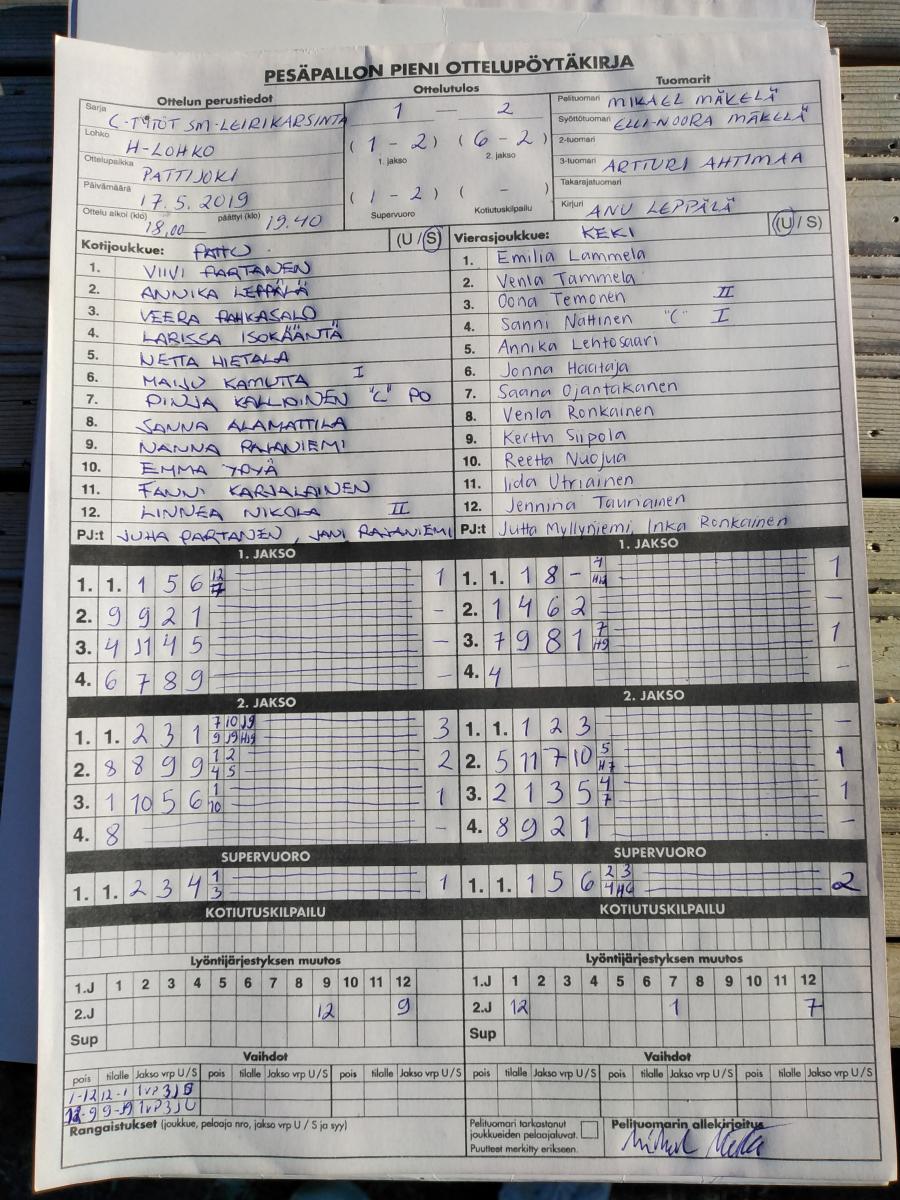 PESÄPALLON PIENI OTTELUPÖYTÄKIRJA
Ottelun perustiedot
Sarja C-TYTÖT SM-LEIRIKARSINTA
Lohko H-LOHKO
Ottelupaikka PATTIJOKI
Päivämäärä 17.5.2019
Ottelu alkoi (klo) 18.00 päättyi (klo) 19.40
Ottelutulos
1 — 2
(1 - 2) (6 - 2)
1. jakso 2. jakso
(1 - 2) ( - )
Supervuoro Kotiutuskilpailu
Tuomarit
Pelituomari MIKAEL MÄKELÄ
Syöttötuomari ELLI-NOORA MÄKELÄ
2-tuomari
3-tuomari ARTTURI AHTIMAA
Takarajatuomari
Kirjuri ANU LEPPÄLÄ
Kotijoukkue: PATTU (U / S)
1. VIIVI PARTANEN
2. ANNIKA LEPPÄLÄ
3. VEERA PAHKASALO
4. LARISSA ISOKÄÄNTÄ
5. NETTA HIETALA
6. MAIJU KAMUTTA I
7. PINJA KALLIOINEN "C" PO
8. SANNA ALAMATTILA
9. NANNA RAJANIEMI
10. EMMA YPYÄ
11. FANNI KARJALAINEN
12. LINNEA NIKOLA II
PJ:t JUHA PARTANEN, JANI RAJANIEMI
Vierasjoukkue: KEKI (U / S)
1. Emilia Lammela
2. Venla Tammela
3. Oona Temonen II
4. Sanni Nattinen "C" I
5. Annika Lehtosaari
6. Jonna Haataja
7. Saana Ojantakanen
8. Venla Ronkainen
9. Kerttu Siipola
10. Reetta Nuojua
11. Iida Utriainen
12. Jennina Tauriainen
PJ:t Jutta Myllyniemi, Inka Ronkainen
1. JAKSO
1. 1. 1 5 6 12 1
2. 9 9 2 1 -
3. 4 11 4 5 -
4. 6 7 8 9 -
2. JAKSO
1. 1. 2 3 1 7 10 J9 9 J9 H19 3
2. 8 8 9 9 1 2 4 5 2
3. 1 10 5 6 1 10 1
4. 8 -
SUPERVUORO
1. 1. 2 3 4 1 3 1
KOTIUTUSKILPAILU
1. JAKSO
1. 1. 1 8 - 7 1
2. 1 4 6 2 -
3. 7 9 8 1 7 H9 1
4. 4 -
2. JAKSO
1. 1. 1 2 3 -
2. 5 11 7 10 5 H7 1
3. 2 1 3 5 4 7 1
4. 8 9 2 1 -
SUPERVUORO
1. 1. 1 5 6 2 3 4 H6 2
KOTIUTUSKILPAILU
Lyöntijärjestyksen muutos
1.J 1 2 3 4 5 6 7 8 9 10 11 12
2.J 12 9
Sup
Lyöntijärjestyksen muutos
1.J 1 2 3 4 5 6 7 8 9 10 11 12
2.J 12 1 7
Sup
Vaihdot
pois tilalle Jakso vrp U/S pois tilalle Jakso vrp U/S pois tilalle Jakso vrp U/S
1-12 12-1 1vP3J S
12-9 9-J9 1vP3J U
Vaihdot
pois tilalle Jakso vrp U/S pois tilalle Jakso vrp U/S pois tilalle Jakso vrp U/S
Rangaistukset (joukkue, pelaaja nro, jakso vrp U / S ja syy)
Pelituomari tarkastanut joukkueiden pelaajaluvat.
Puutteet merkitty erikseen.
Pelituomarin allekirjoitus